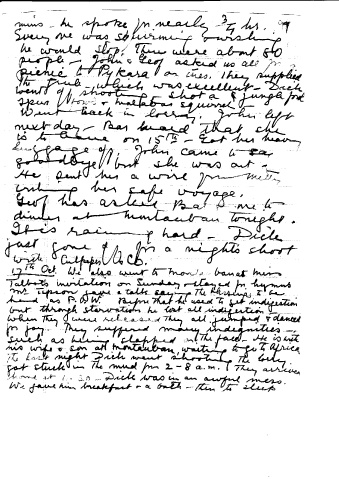 mins. he spoke for nearly 3/4 hr. 99
Every one was squirming & wishing
he would stop. There were about 80
people - John & Geof asked us all for a
picnic to Pykara on tues. They supplied
the which was excellent - Dick
went off shooting - shot a & jungle fowl
spur & malabar squirrel
went back in lorry. John left
next day - Bar heard that she
is to leave on 15th - Got her heavy
luggage off. John came to say
goodbye but she was out -
He sent her a wire from Metty
wishing her safe voyage.
Geof has asked Bar & me to
dinner at Montauban tonight.
It is raining hard - Dick
just gone off for a nights shoot
with Culpeper & Co.
17th Oct We also went to at Miss
Talbots invitation on Sunday & stayed for hymns
Mr Tipson gave a talk, say the Russians to he
had as P.O.W. Before that he used to get indigestion
but through starvation he lost all indigestion -
When they were released they all jumped & danced
for joy. They suffered many indignities -
such as being slapped in the face - He is with
his wife & son at Montauban, waiting to go to Africa
The last night Dick went shooting the lorry
got stuck in the mud from 2-8 a.m. They arrived
home at - Dick was in an awful mess.
We gave him breakfast & a bath - then to sleep